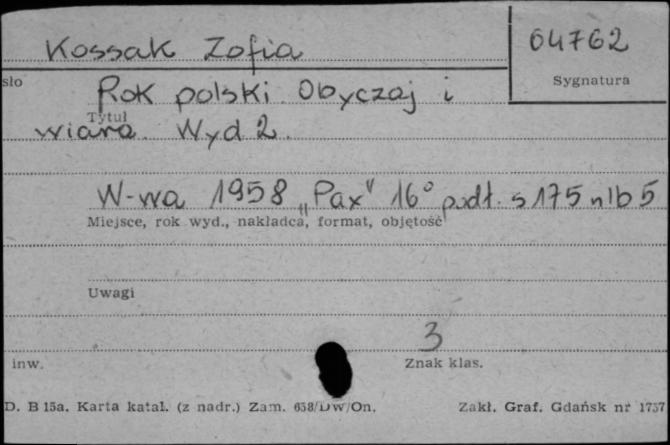 Kossak Zofia
04762
Sygnatura
sło
Rok polski. Obyczaj i
Tytuł
wiara. Wyd 2.
W-wa 1958 „Pax" 16° podł. s 175 nlb 5
Miejsce, rok wyd., nakładca, format, objętość
Uwagi
3
inw.
Znak klas.
D. B 15a. Karta katal. (z nadr.) Zam. 658/DW/On.
Zakł. Graf. Gdańsk nr 1757